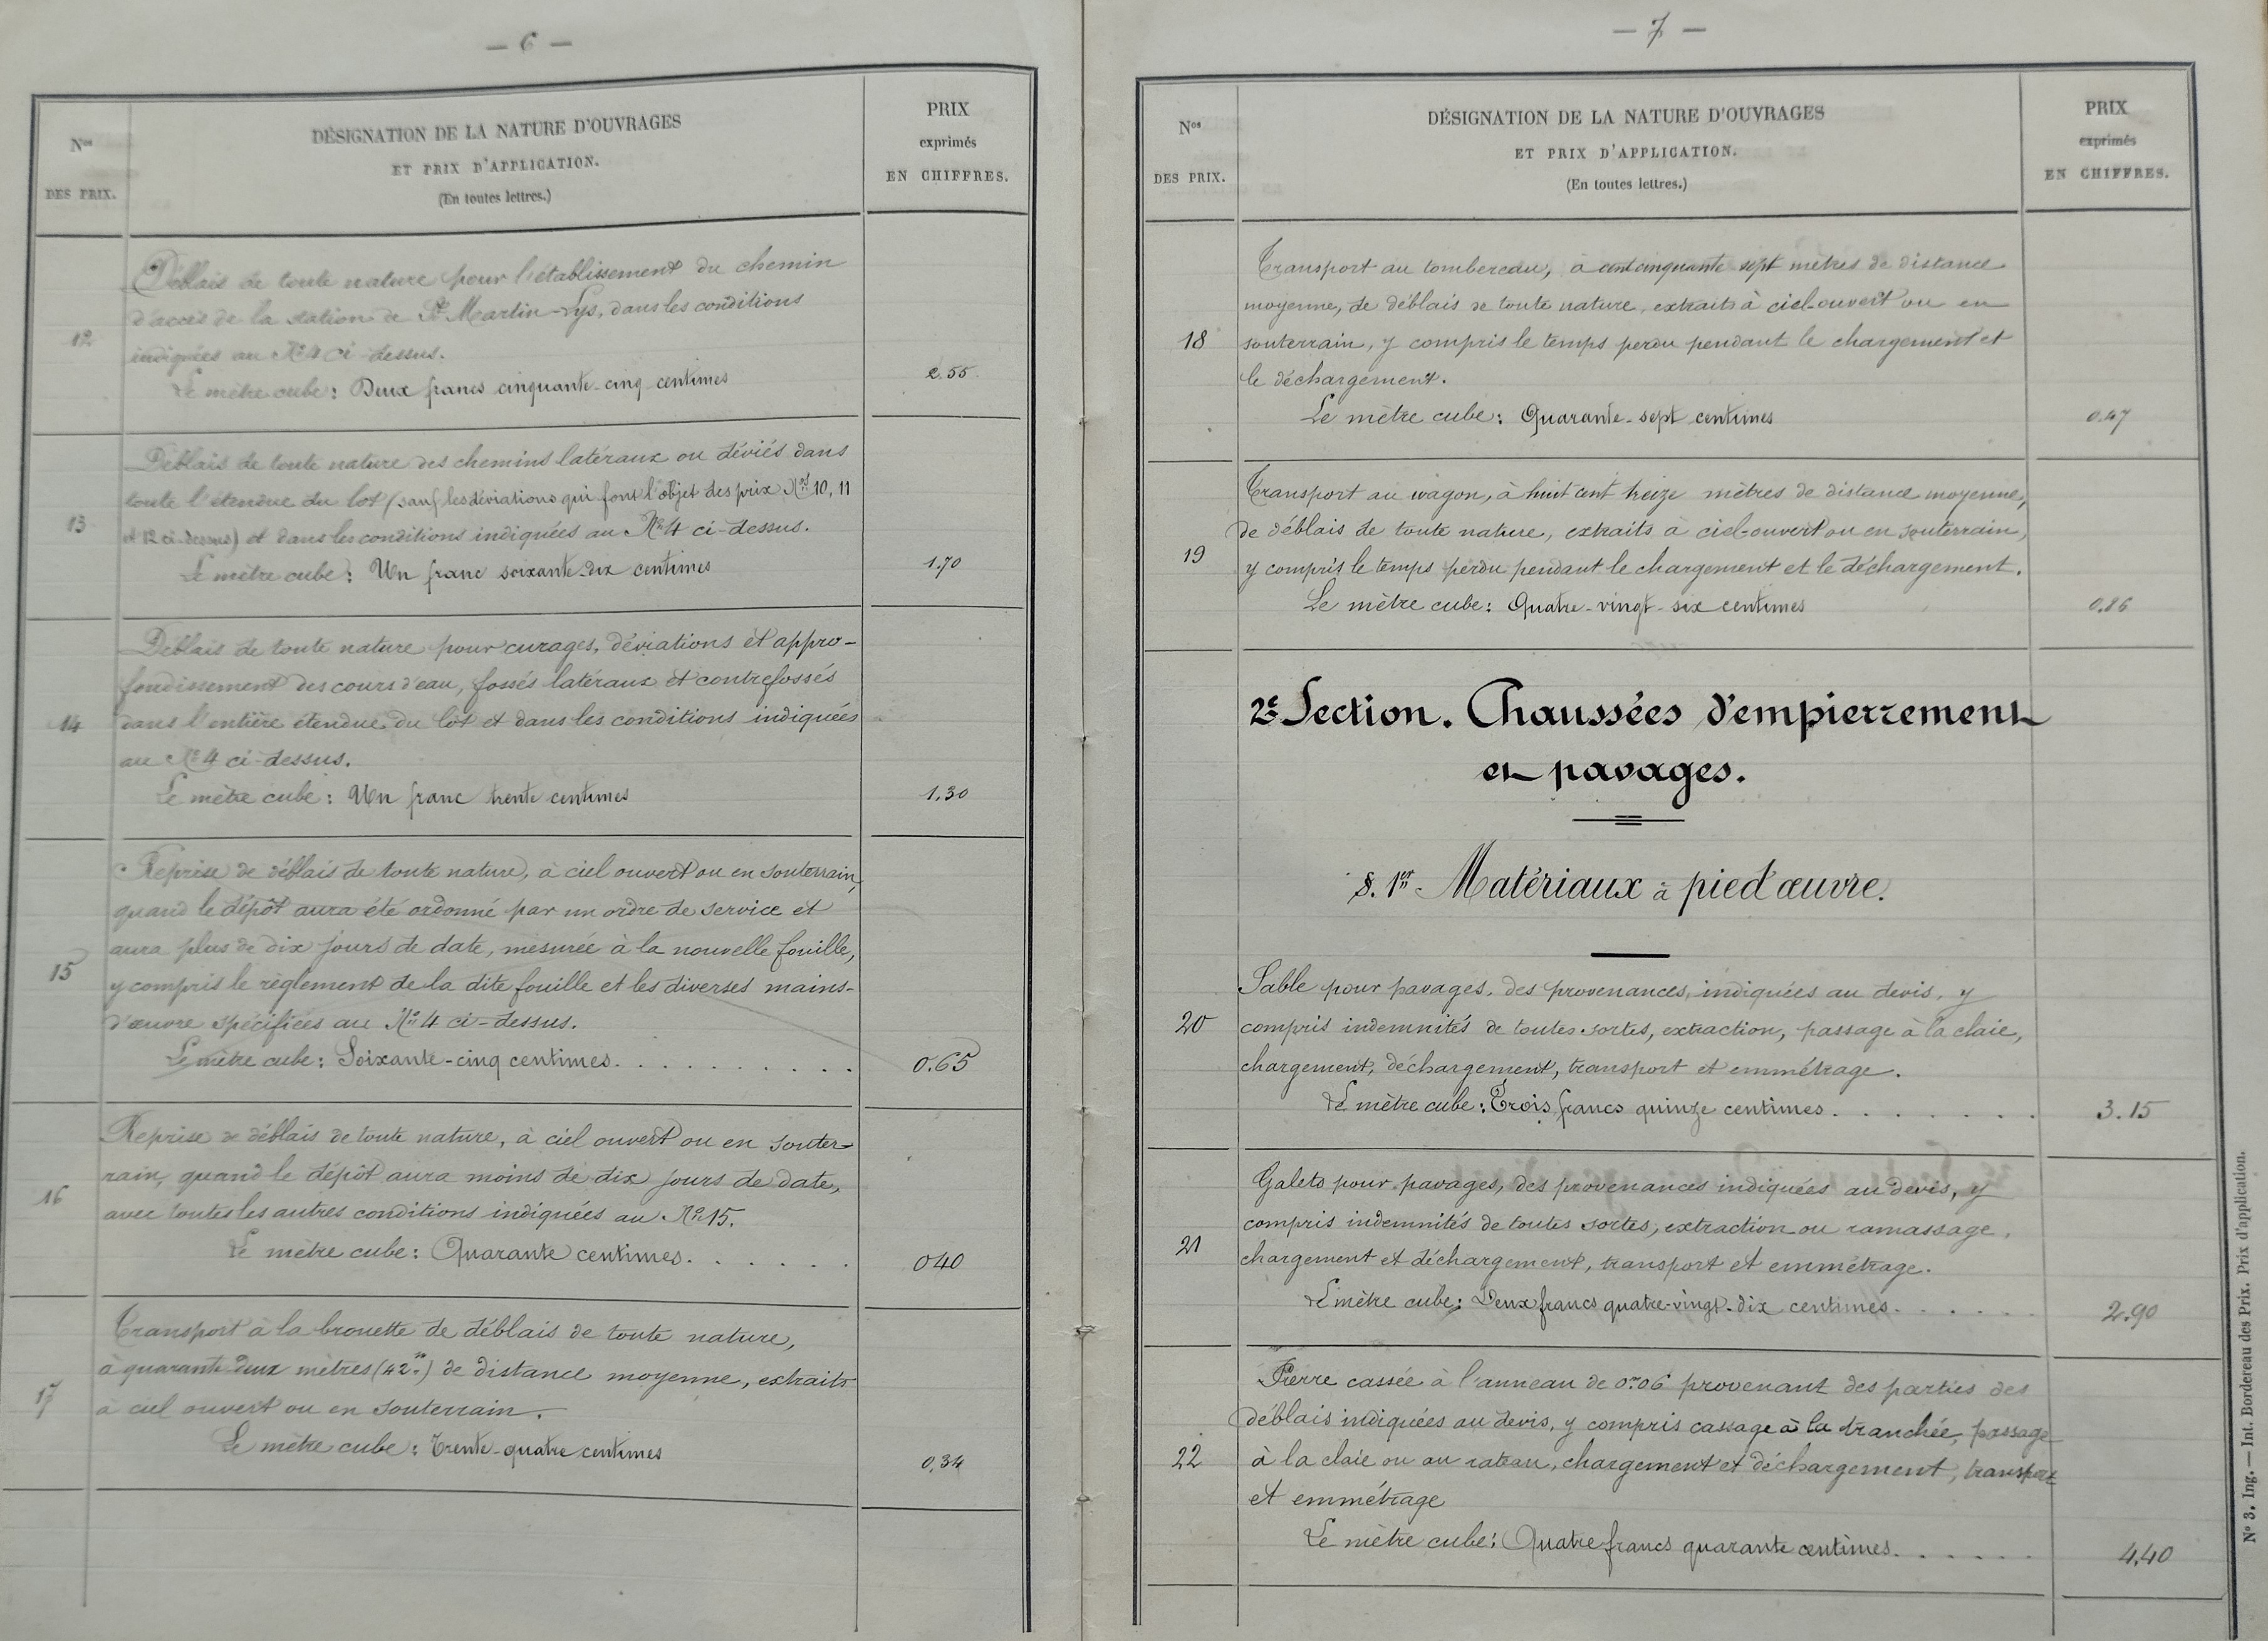 — 6 —
Nos
DES PRIX.
DÉSIGNATION DE LA NATURE D'OUVRAGES
ET PRIX D'APPLICATION.
(En toutes lettres.)
PRIX
exprimés
EN CHIFFRES.
12
Déblais de toute nature pour l'établissement du chemin
d'accès de la station de St Martin-Lys, dans les conditions
indiquées au No 4 ci-dessus.
Le mètre cube : Deux francs cinquante-cinq centimes
2.55
13
Déblais de toute nature des chemins latéraux ou déviés dans
toute l'étendue du lot (sauf les déviations qui font l'objet des prix Nos 10, 11
et 12 ci-dessus) et dans les conditions indiquées au No 4 ci-dessus.
Le mètre cube : Un franc soixante-dix centimes
1.70
14
Déblais de toute nature pour curages, déviations et appro-
fondissement des cours d'eau, fossés latéraux et contrefossés
dans l'entière étendue du lot et dans les conditions indiquées
au No 4 ci-dessus.
Le mètre cube : Un franc trente centimes
1.30
15
Reprise de déblais de toute nature, à ciel ouvert ou en souterrain,
quand le dépôt aura été ordonné par un ordre de service et
aura plus de dix jours de date, mesurée à la nouvelle fouille,
y compris le règlement de la dite fouille et les diverses mains-
d'œuvre spécifiées au No 4 ci-dessus.
Le mètre cube : Soixante-cinq centimes. . . . . . . . . .
0.65
16
Reprise de déblais de toute nature, à ciel ouvert ou en souter-
rain, quand le dépôt aura moins de dix jours de date,
avec toutes les autres conditions indiquées au No 15.
Le mètre cube : Quarante centimes. . . . . . .
040
17
Transport à la brouette de déblais de toute nature,
à quarante deux mètres (42m.) de distance moyenne, extraits
à ciel ouvert ou en souterrain.
Le mètre cube : Trente-quatre centimes
0,34
— 7 —
Nos
DES PRIX.
DÉSIGNATION DE LA NATURE D'OUVRAGES
ET PRIX D'APPLICATION.
(En toutes lettres.)
PRIX
exprimés
EN CHIFFRES.
18
Transport au tombereau, à cent cinquante sept mètres de distance
moyenne, de déblais de toute nature, extraits à ciel-ouvert ou en
souterrain, y compris le temps perdu pendant le chargement et
le déchargement.
Le mètre cube : Quarante-sept centimes
0.47
19
Transport au wagon, à huit cent treize mètres de distance moyenne,
de déblais de toute nature, extraits à ciel-ouvert ou en souterrain,
y compris le temps perdu pendant le chargement et le déchargement.
Le mètre cube : Quatre-vingt-six centimes
0.86
2e Section. Chaussées d'empierrement
et pavages.
§. 1er Matériaux à pied d'œuvre.
20
Sable pour pavages, des provenances, indiquées au devis, y
compris indemnités de toutes sortes, extraction, passage à la claie,
chargement, déchargement, transport et emmétrage.
Le mètre cube : Trois francs quinze centimes. . . . . . . .
3.15
21
Galets pour pavages, des provenances indiquées au devis, y
compris indemnités de toutes sortes, extraction ou ramassage,
chargement et déchargement, transport et emmétrage.
Le mètre cube : Deux francs quatre-vingt-dix centimes. . . . . .
2.90
22
Pierre cassée à l'anneau de 0m06 provenant des parties des
déblais indiquées au devis, y compris cassage à la tranchée, passage
à la claie ou au rateau, chargement et déchargement, transport
et emmétrage
Le mètre cube : Quatre francs quarante centimes. . . . . .
4,40
No 3. Ing. — Int. Bordereau des Prix. Prix d'application.